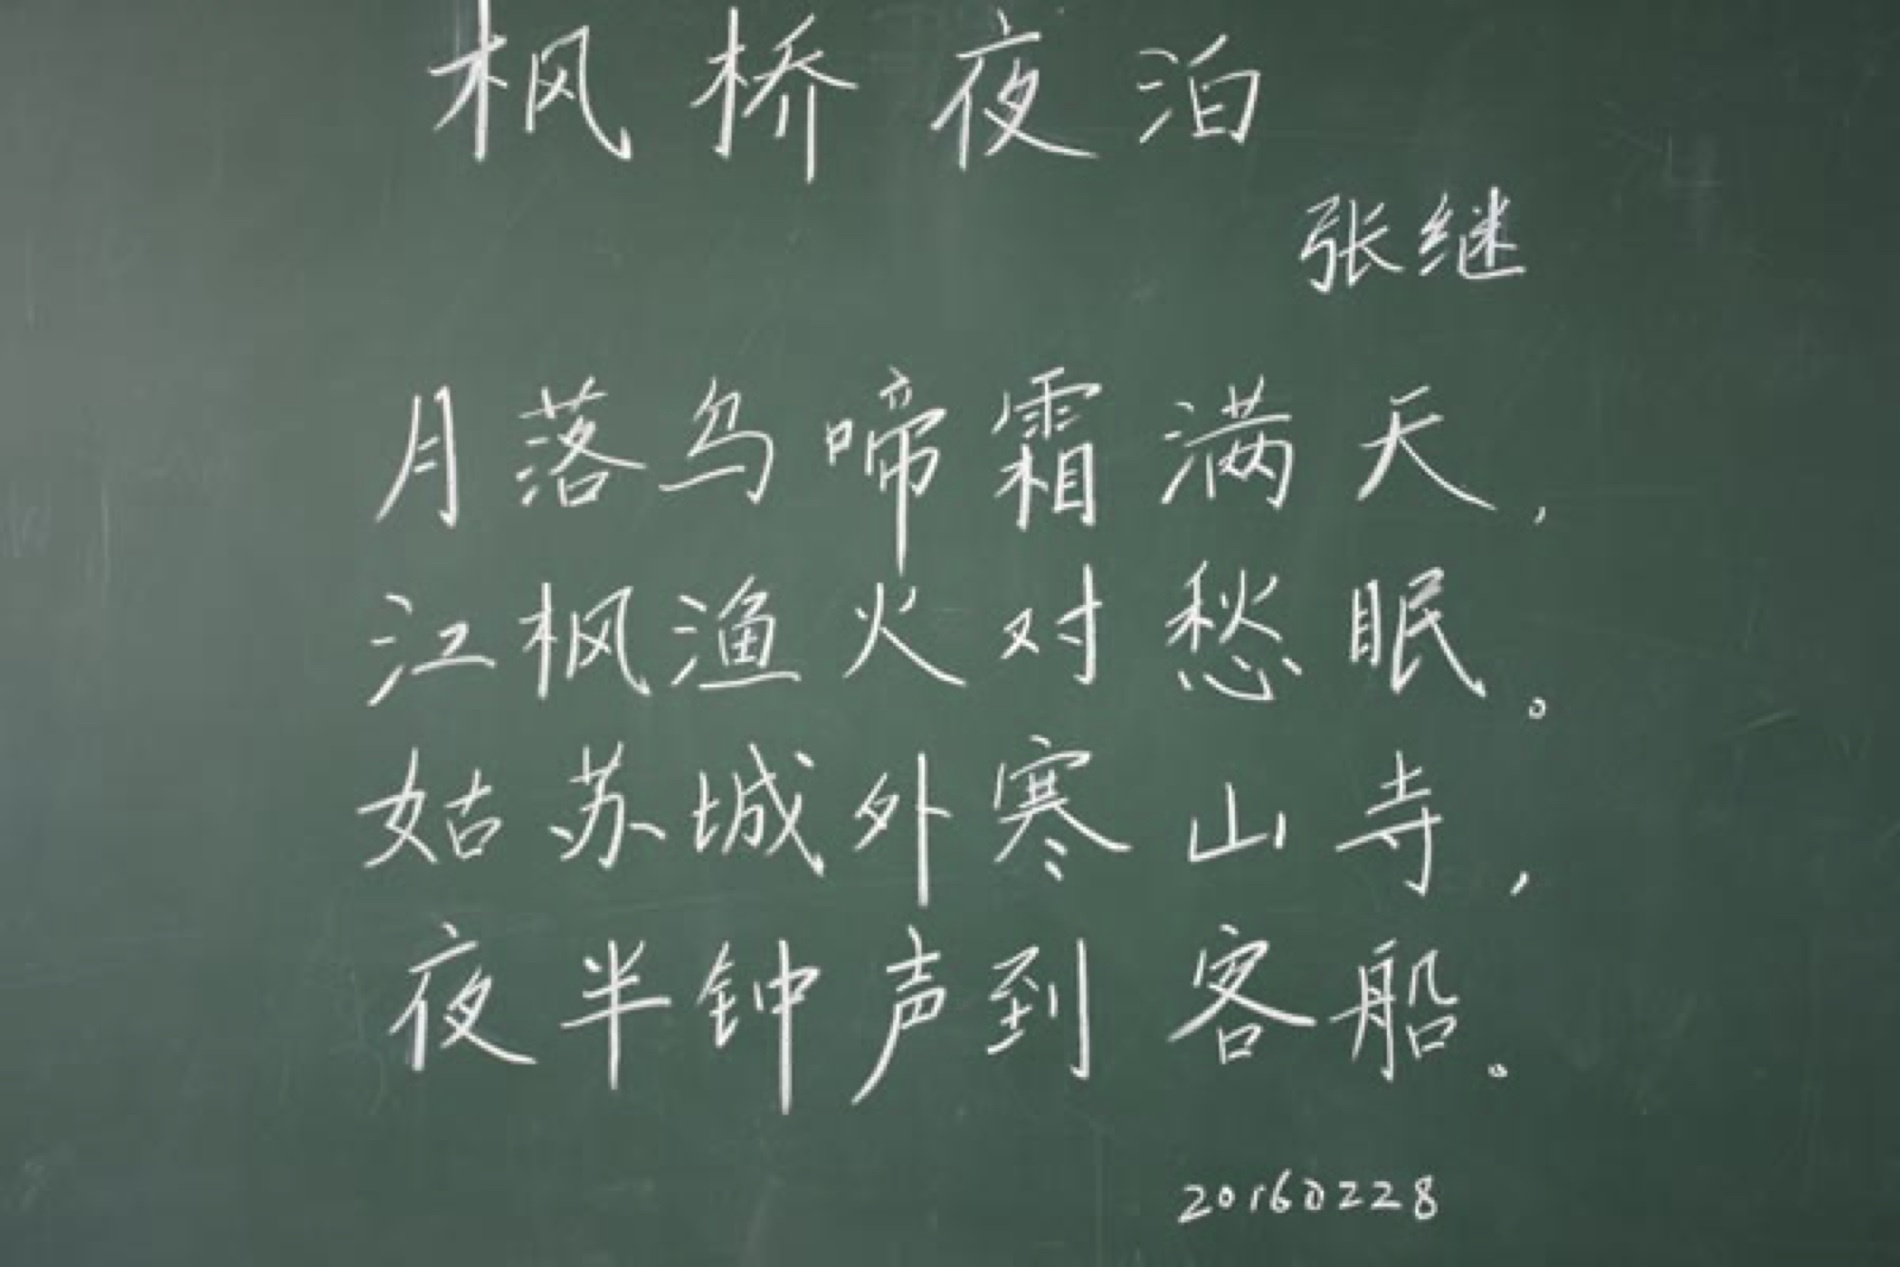 枫桥夜泊
张继
月落乌啼霜满天，
江枫渔火对愁眠。
姑苏城外寒山寺，
夜半钟声到客船。
20160228